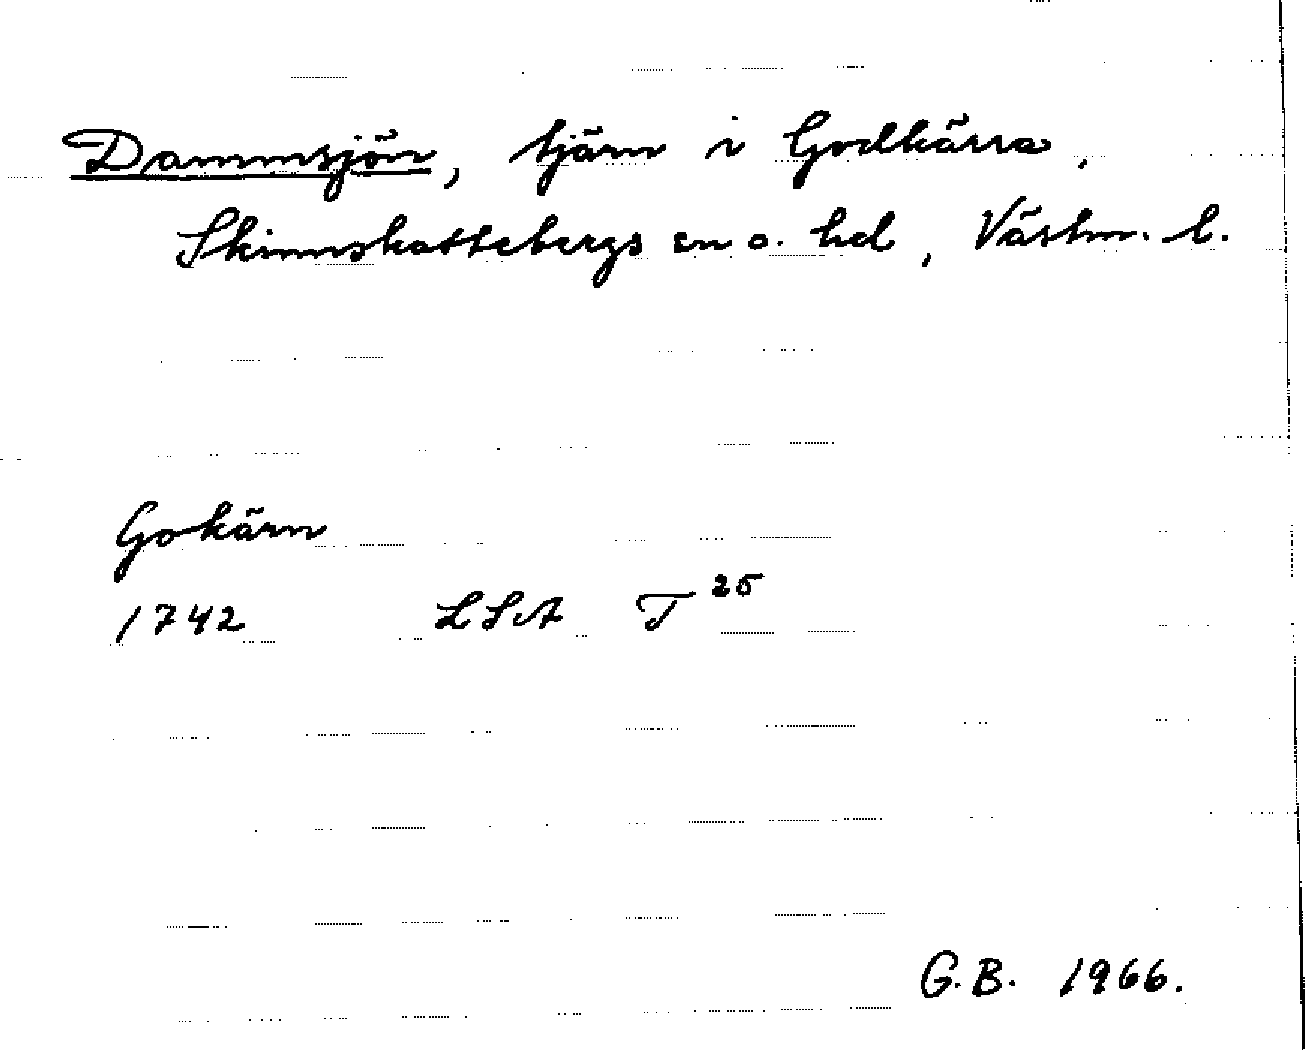 Dammsjön, tjärn i Godkärra,
Skinnskattebergs sn o. hd, Västm. l.
Gokärn
1742 LSA T 25
G.B. 1966.